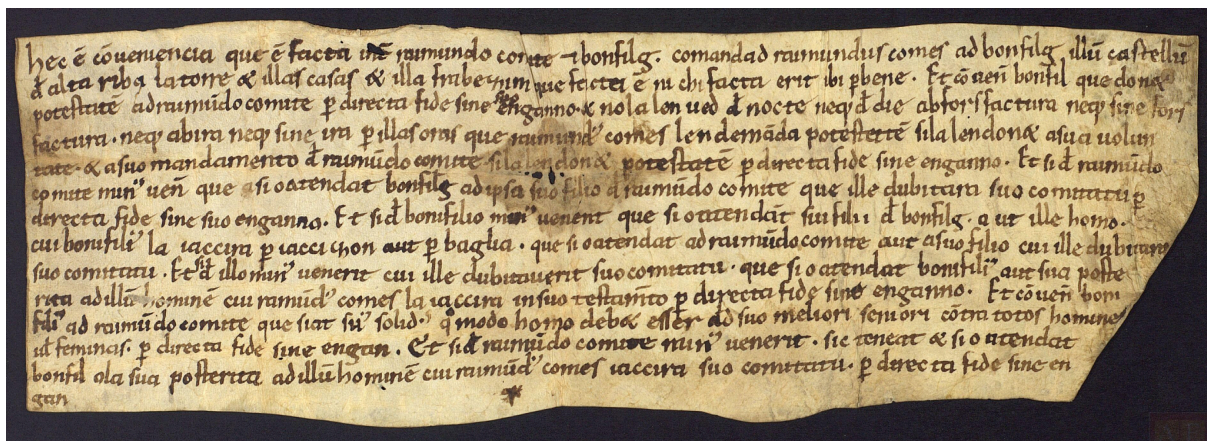 hec ē cōveniencia que ē facta int̄ raimundo comite ⁊ bonfilg. comandad raimundus comes ad bonfilg illū castellū
đ alta riba la torre & illas casas & illa que factei ē ni chi facta erit ibi p̱ bene. Et cōveñ bonfil que don&
potestatē ad raimūdo comite p̱ directa fide sine enganno. & no la len ved đ nocte neq; đ die ab forsfactura neq; sine fors
factura. neq; ab ira neq; sine ira p̱ illas oras que raimund᾿ comes len demāda potestatē si la lendon& a sua volun
tate. & a suo mandamento đ raimūdo comite si la lendon& potestatē p̱ directa fide sine enganno. Et si đ raimūdo
comite mun᾿ veñ que si o atendat bonfilg ad ipsa suo filio đ raimūdo comite que ille dubitara suo comitatu p̱
directa fide sine suo enganno. Et si đ bonifilio mun᾿ venerit que si o atendāt sui filii đ bonfilg. a ut ille homo.
cui bonifili᾿ la iaccira p̱ iacci chon aut p̱ baglia. que si o atendat ad raimūdo comite aut a suo filio cui ille dubitara
suo comitatu. Et si đ illo mun᾿ venerit cui ille dubitaverit suo comitatu. que si o atendat bonifili᾿ aut sua poste
rita ad illū hominē cui ramūd᾿ comes la iaccira in suo testam̄to p̱ directa fide sine enganno. Et cōveñ boni
fili᾿ ad raimūdo comite que siat su᾿ solid᾿. q°modo homo deb& esser ad suo meliori seniori cōtra totos homines
ul feminas. p̱ directa fide sine engan. Et si đ raimūdo comite mun᾿ venerit. sic teneat & si o atendat
bonfil ola sua posterita ad illū hominē cui raimūd᾿ comes iaccira suo comitatu. p̱ directa fide sine en
gan